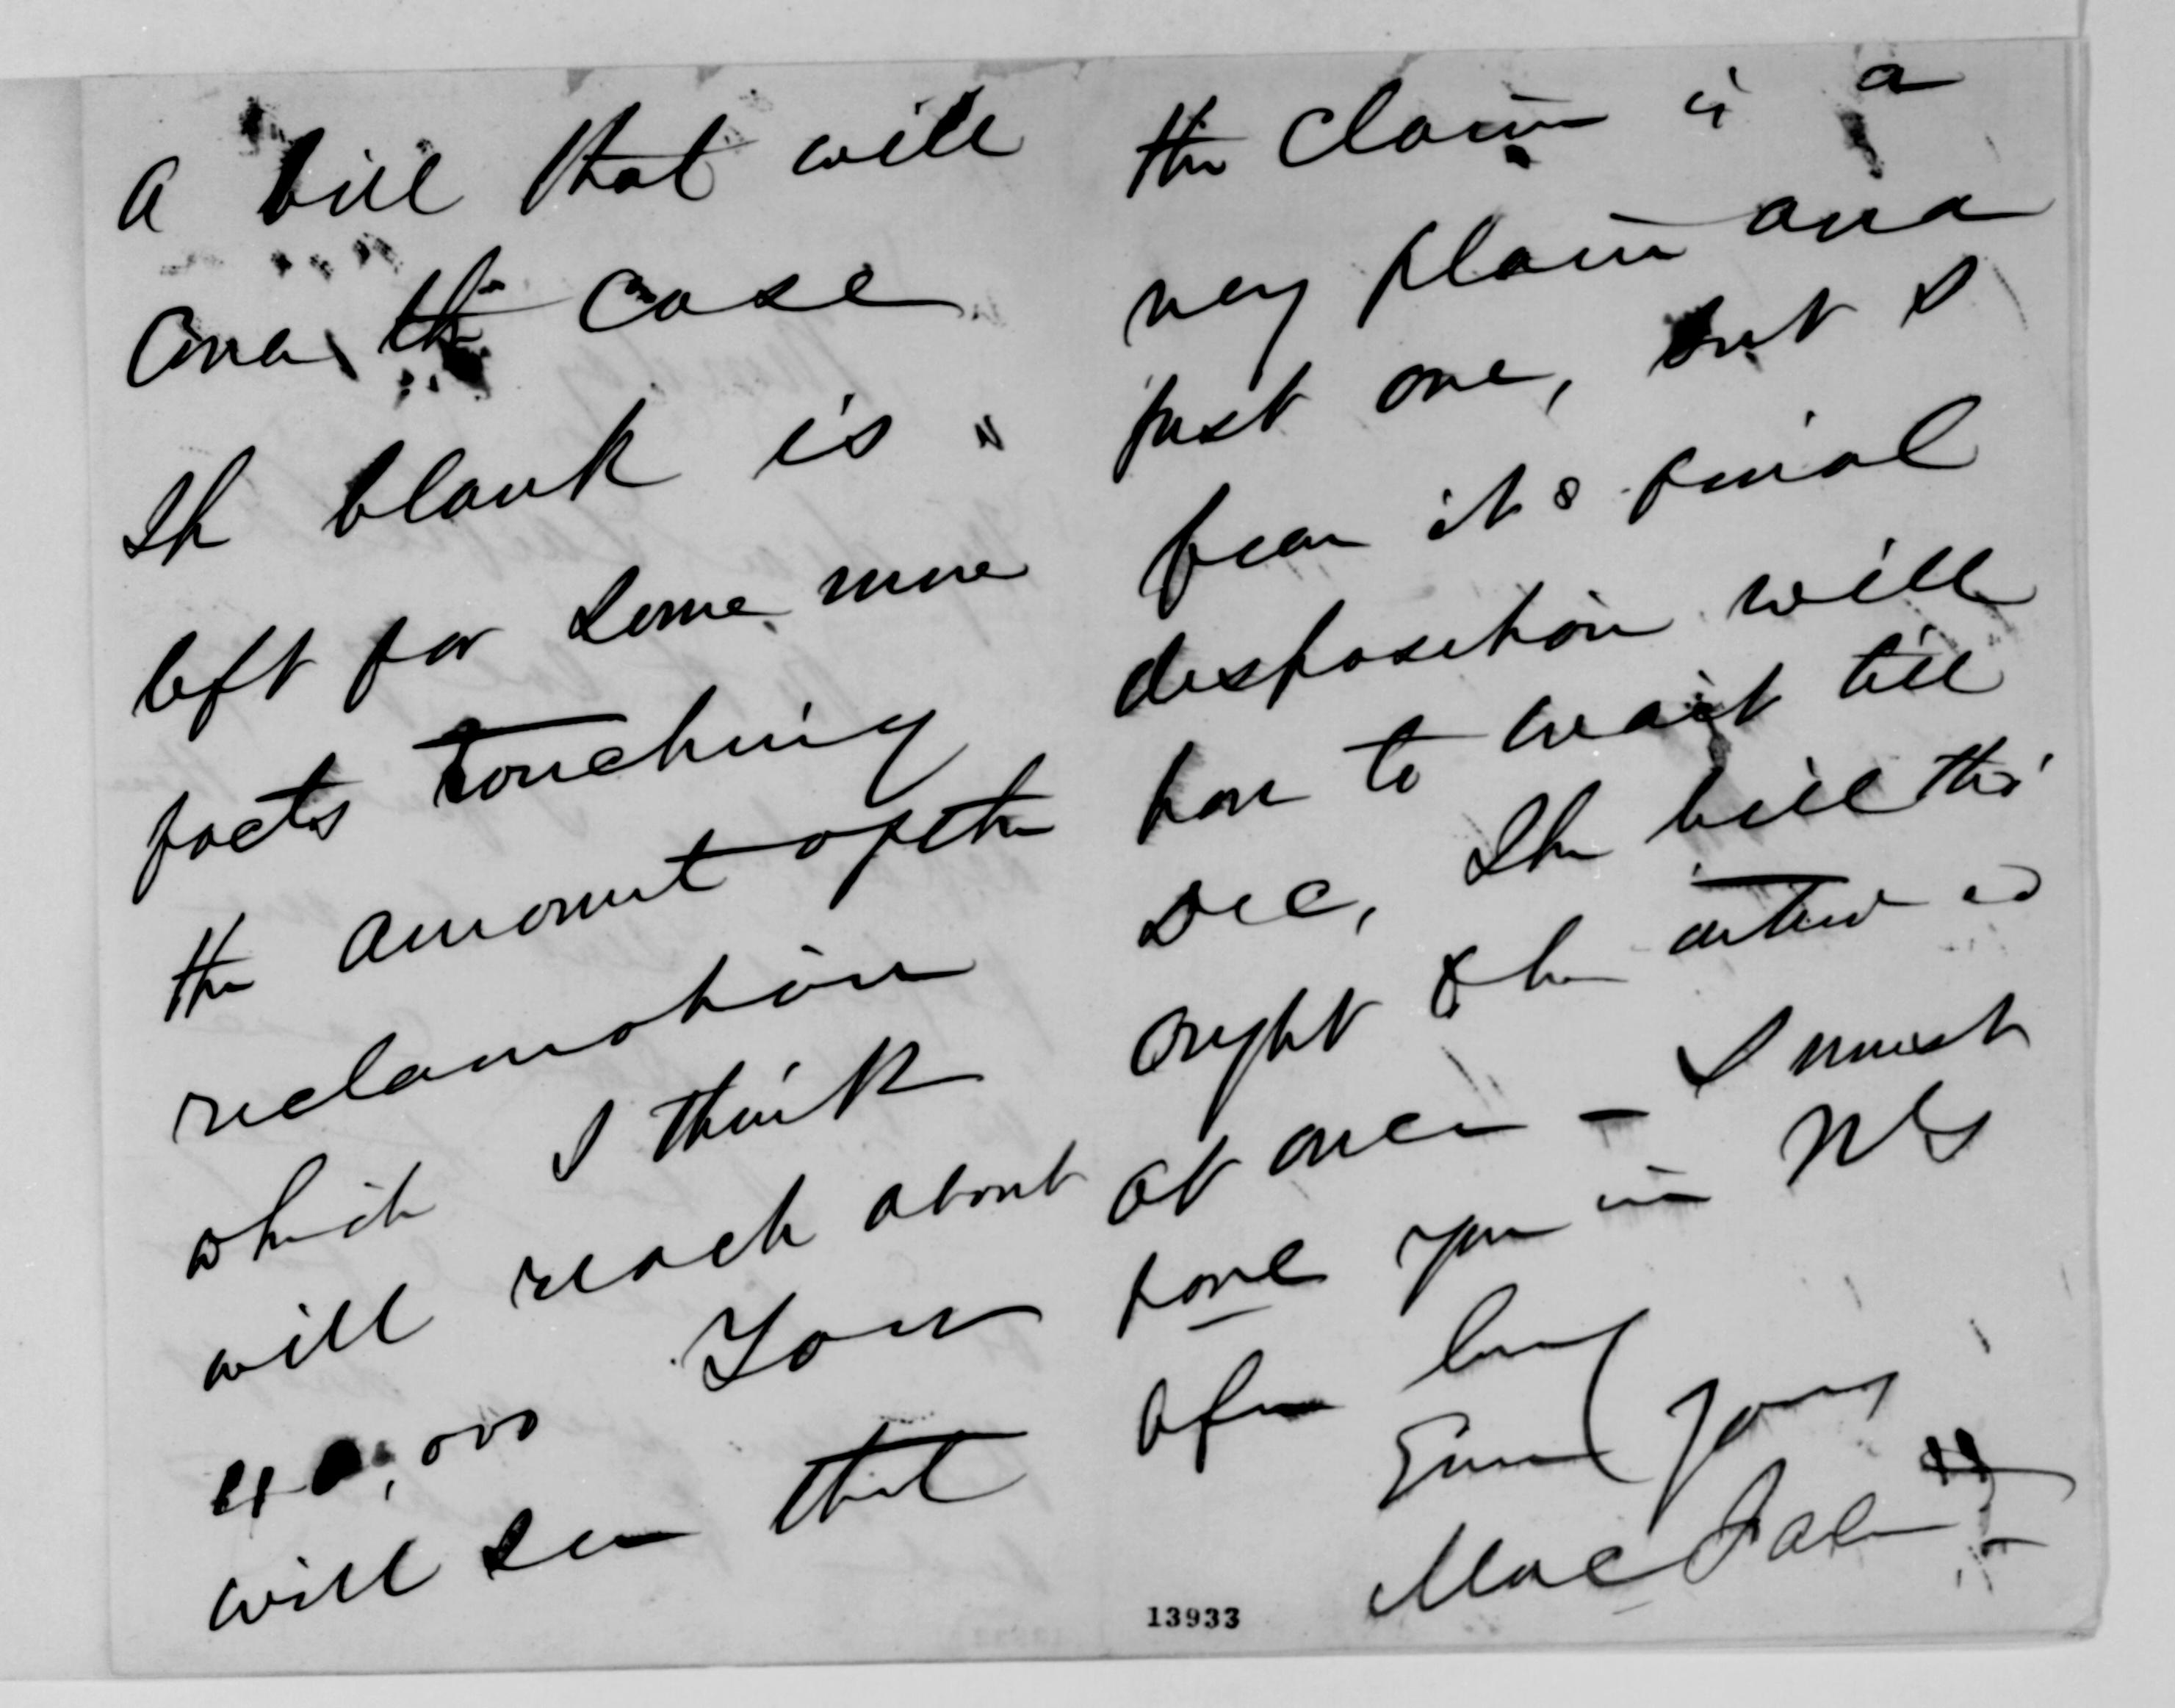 a bill that will
the case
The blank is
left for some more
facts touching
the amount of the
reclamation
which I think
will reach about
40,000 You
will see that
the claim is a
very plain and
just one, but I
fear its final
disposition will
have to wait till
Dec, The bill tho'
ought to be entered
at once — I must
have you in NY
Ever yours
13933